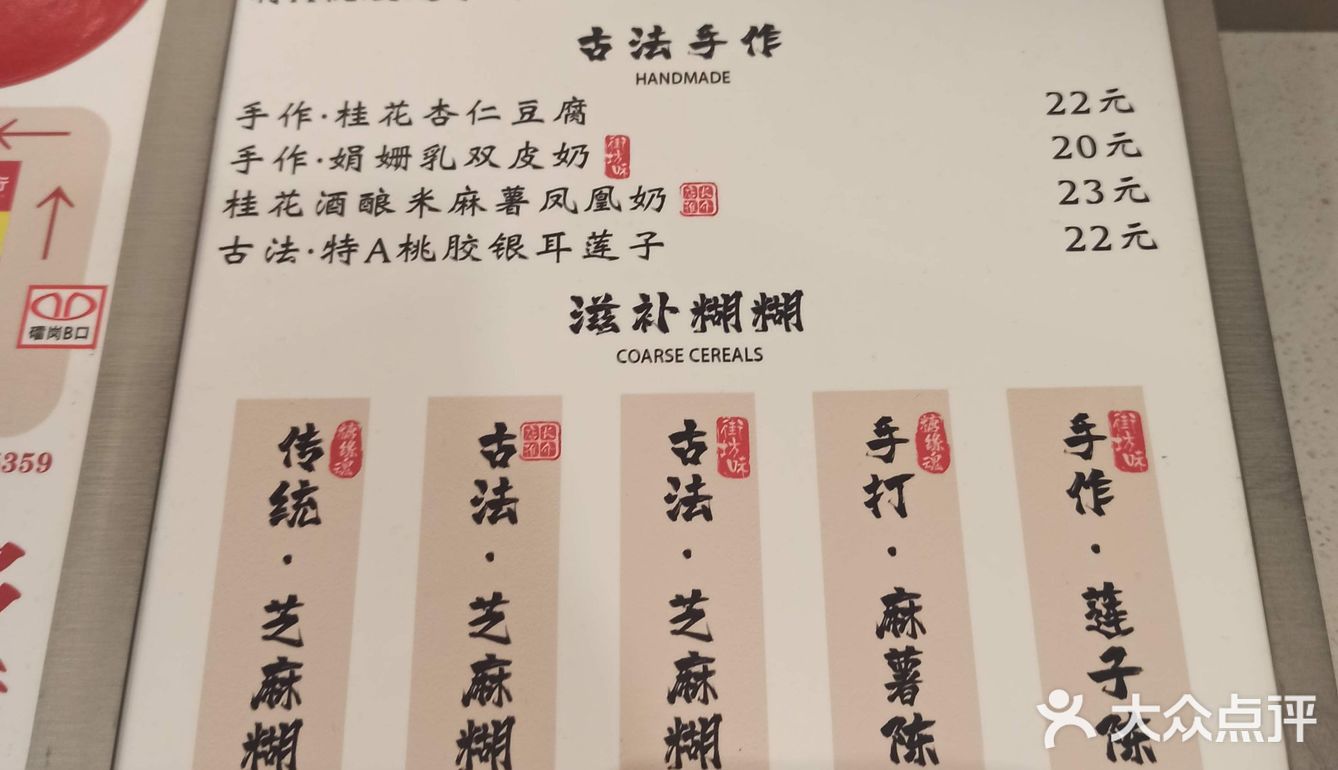 古法手作
HANDMADE
手作·桂花杏仁豆腐 22元
手作·娟姗乳双皮奶 街坊味 20元
桂花酒酿米麻薯凤凰奶 23元
古法·特A桃胶银耳莲子 22元
滋补糊糊
COARSE CEREALS
传统·芝麻糊
糖缘魂
古法·芝麻糊
古法·芝麻糊
街坊味
手打·麻薯陈
糖缘魂
手作·莲子陈
街坊味
礌岗B口
5359
大众点评